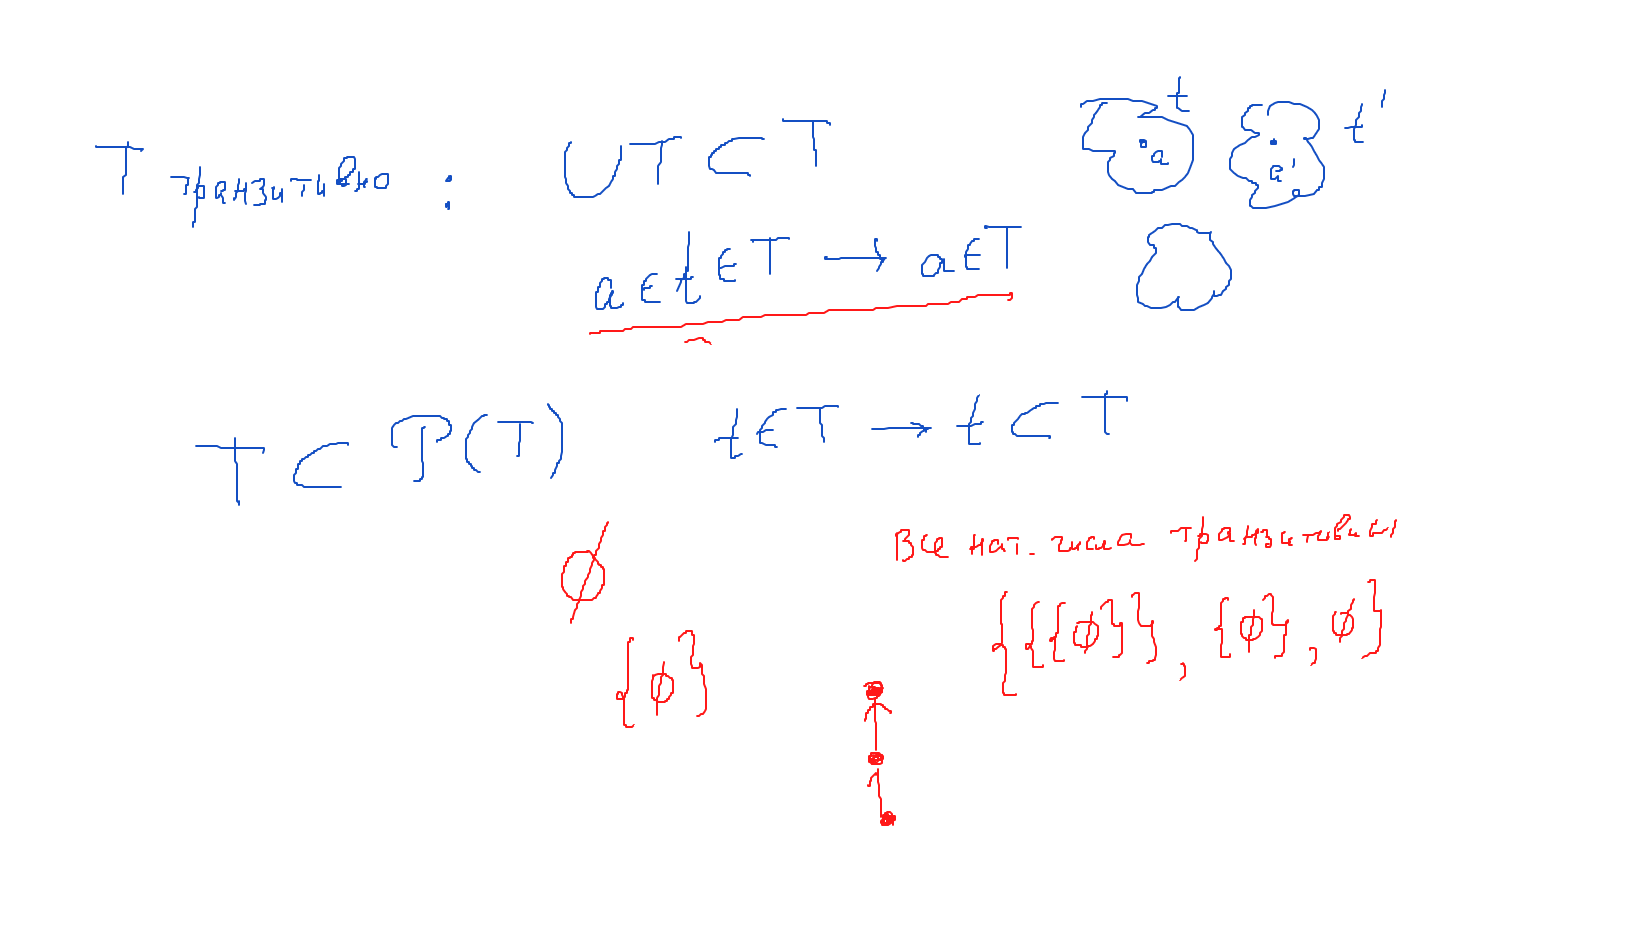 T транзитивно : ∪T ⊂ T
t
t'
a
a'
a ∈ t ∈ T → a ∈ T
T ⊂ P(T)
t ∈ T → t ⊂ T
Все нат. числа транзитивны
∅
{{{∅}}, {∅}, ∅}
{∅}